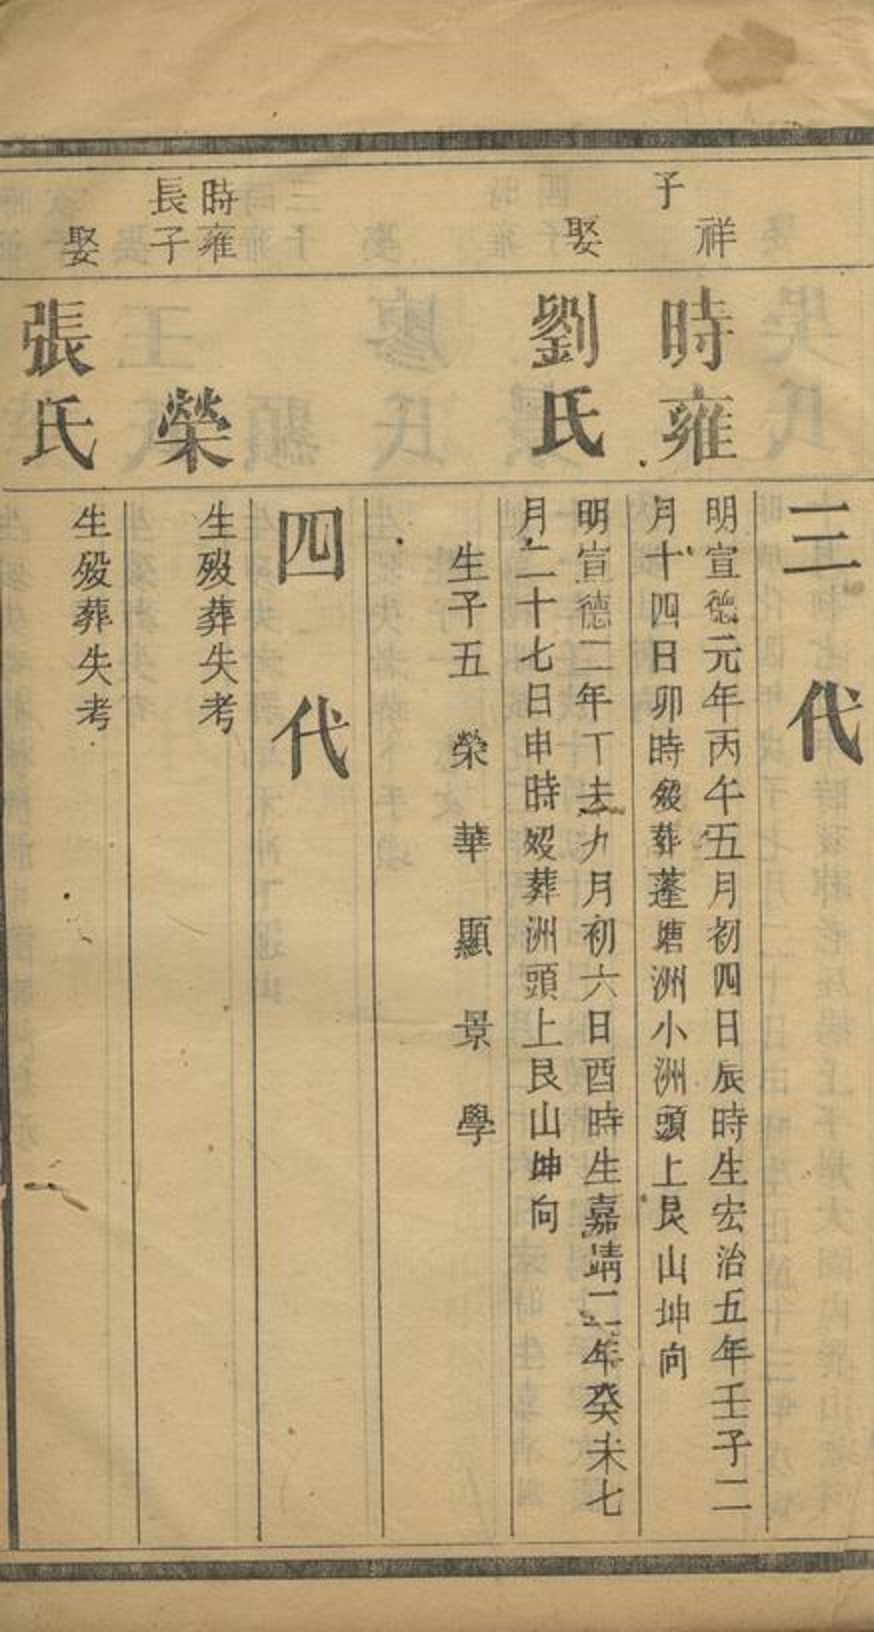 三代
祥子
時雍
明宣德元年丙午五月初四日辰時生宏治五年壬子二
月十四日卯時歿葬蓬塘洲小洲頭上艮山坤向
娶
劉氏
明宣德二年丁未九月初六日酉時生嘉靖二年癸未七
月二十七日申時歿葬洲頭上艮山坤向
生子五 榮 華 顯 景 學
四代
時雍
長子
榮
生歿葬失考
娶
張氏
生歿葬失考